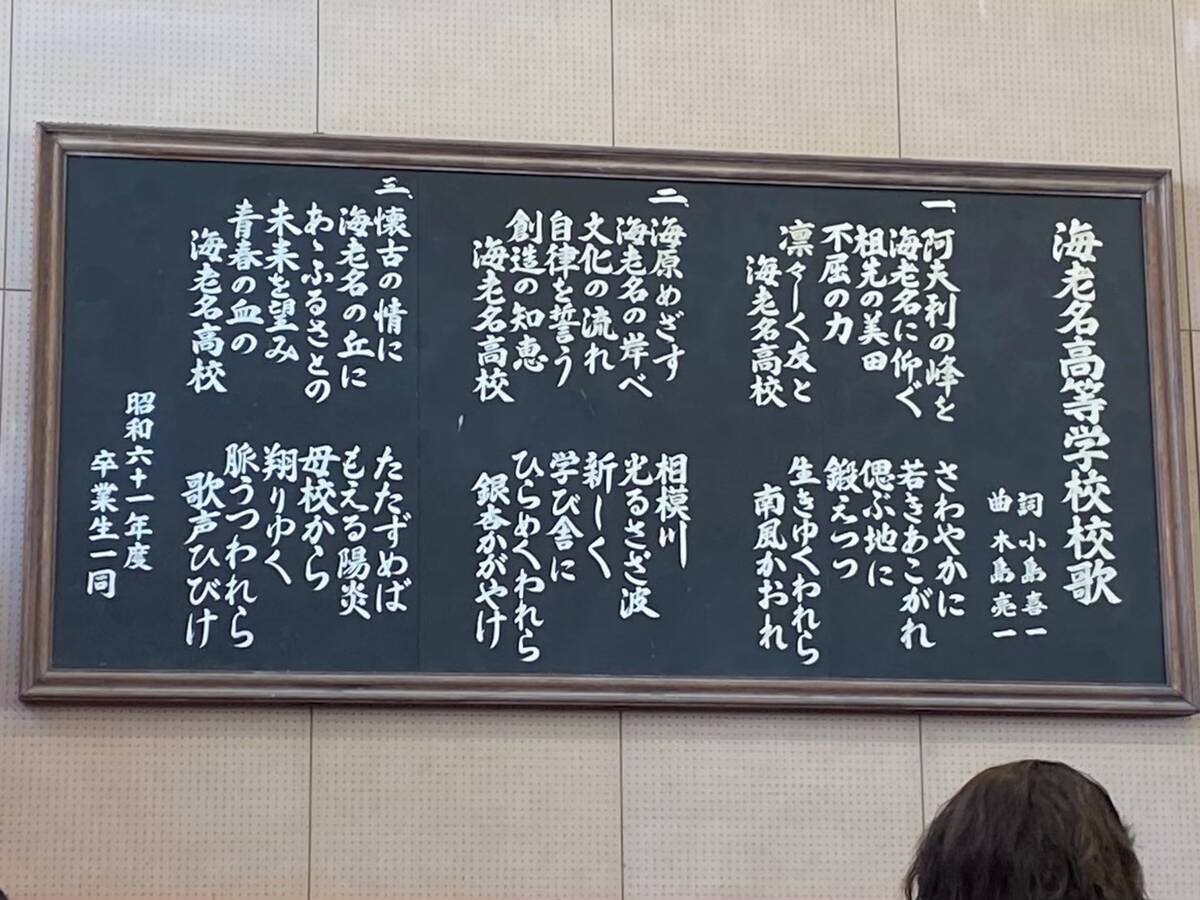 海老名高等学校校歌
詞 小島喜一
曲 木島亮一
一、阿夫利の峰を さわやかに
海老名に仰ぐ 若きあこがれ
祖先の美田 偲ぶ地に
不屈の力 鍛えつつ
凛々しく友と 生きゆくわれら
海老名高校 南風かおれ
二、海原めざす 相模川
海老名の岸べ 光るさざ波
文化の流れ 新しく
自律を誓う 学び舎に
創造の知恵 ひらめくわれら
海老名高校 銀杏かがやけ
三、懐古の情に たたずめば
海老名の丘に もえる陽炎
あゝふるさとの 母校から
未来を望み 翔りゆく
青春の血の 脈うつわれら
海老名高校 歌声ひびけ
昭和六十一年度
卒業生一同